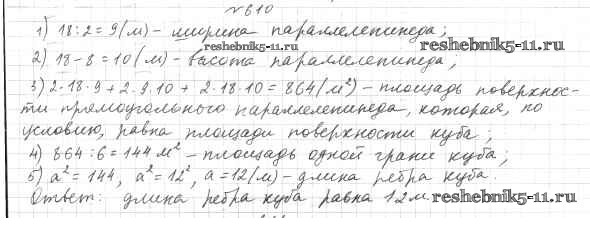 №610
1) 18:2=9(м) - ширина параллелепипеда;
reshebnik5-11.ru
2) 18-8=10(м) - высота параллелепипеда;
reshebnik5-11.ru
3) 2·18·9+2·9·10+2·18·10=864(м²) - площадь поверхнос-
ти прямоугольного параллелепипеда, которая, по
условию, равна площади поверхности куба;
4) 864:6=144м² - площадь одной грани куба;
5) a²=144, a²=12², a=12(м) - длина ребра куба.
Ответ: длина ребра куба равна 12м.
reshebnik5-11.ru